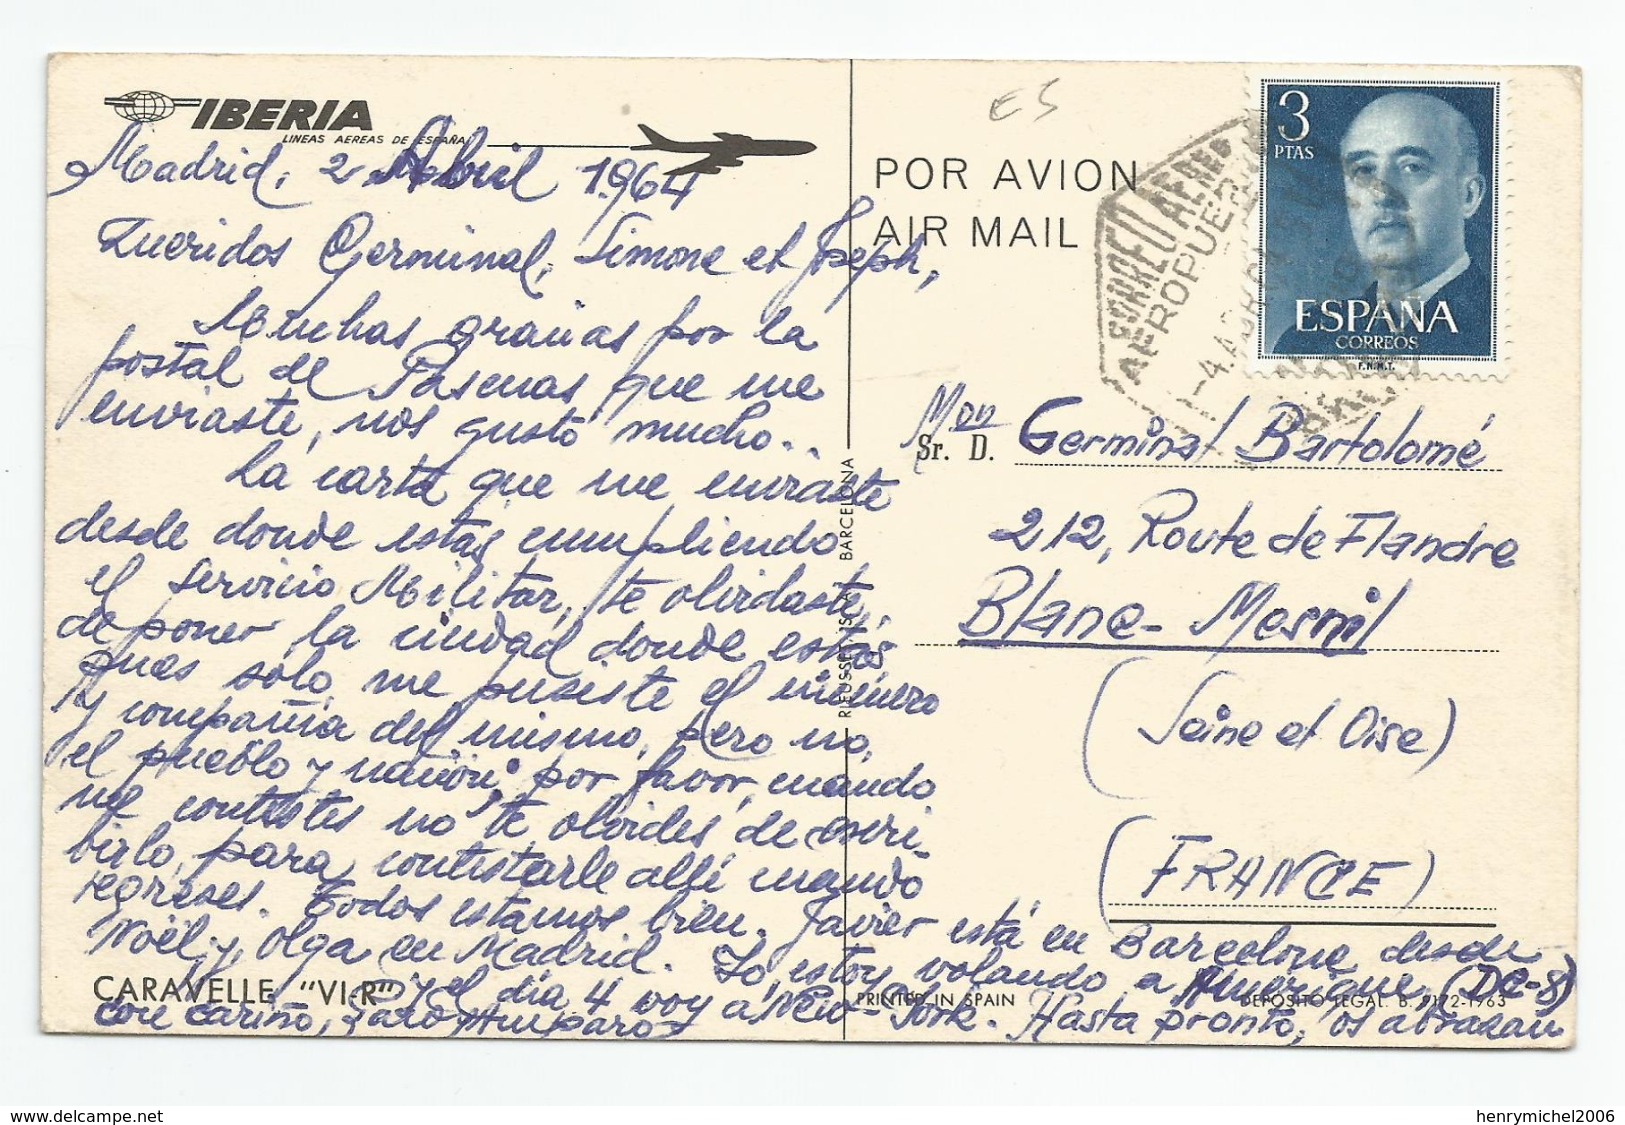 IBERIA
LINEAS AEREAS DE ESPAÑA
Madrid, 2 Abril 1.964
Queridos Germinal, Simone et Joseph,
Muchas gracias por la
postal de Pascuas que me
enviaste, nos gustó mucho..
La carta que me enviaste
desde donde estás cumpliendo
el Servicio Militar, te olvidaste,
de poner la ciudad donde estás
pues solo me pusiste el número
y compañía del mismo, pero no,
el pueblo y nación; por favor, cuando
me contestes no te olvides de escri-
birlo, para contestarle allí cuando
regreses. Todos estamos bien. Javier está en Barcelona desde
Noël y Olga en Madrid. Yo, estoy volando a Amerique (DC-8)
y el día 4 voy a New-York. Hasta pronto, os abrazan
con cariño, Amparo
CARAVELLE "VI-R"
RIEUSSET, S. A. BARCELONA
PRINTED IN SPAIN
DEPOSITO LEGAL. B. 9172-1963
POR AVION
AIR MAIL
ES
CORREO AEREO
AEROPUERTO
-4.ABR
3
PTAS
ESPAÑA
CORREOS
F.N.M.T.
Mon
Sr. D. Germinal Bartolomé
212, Route de Flandre
Blanc-Mesnil
(Seine et Oise)
(FRANCE)
henrymichel2006